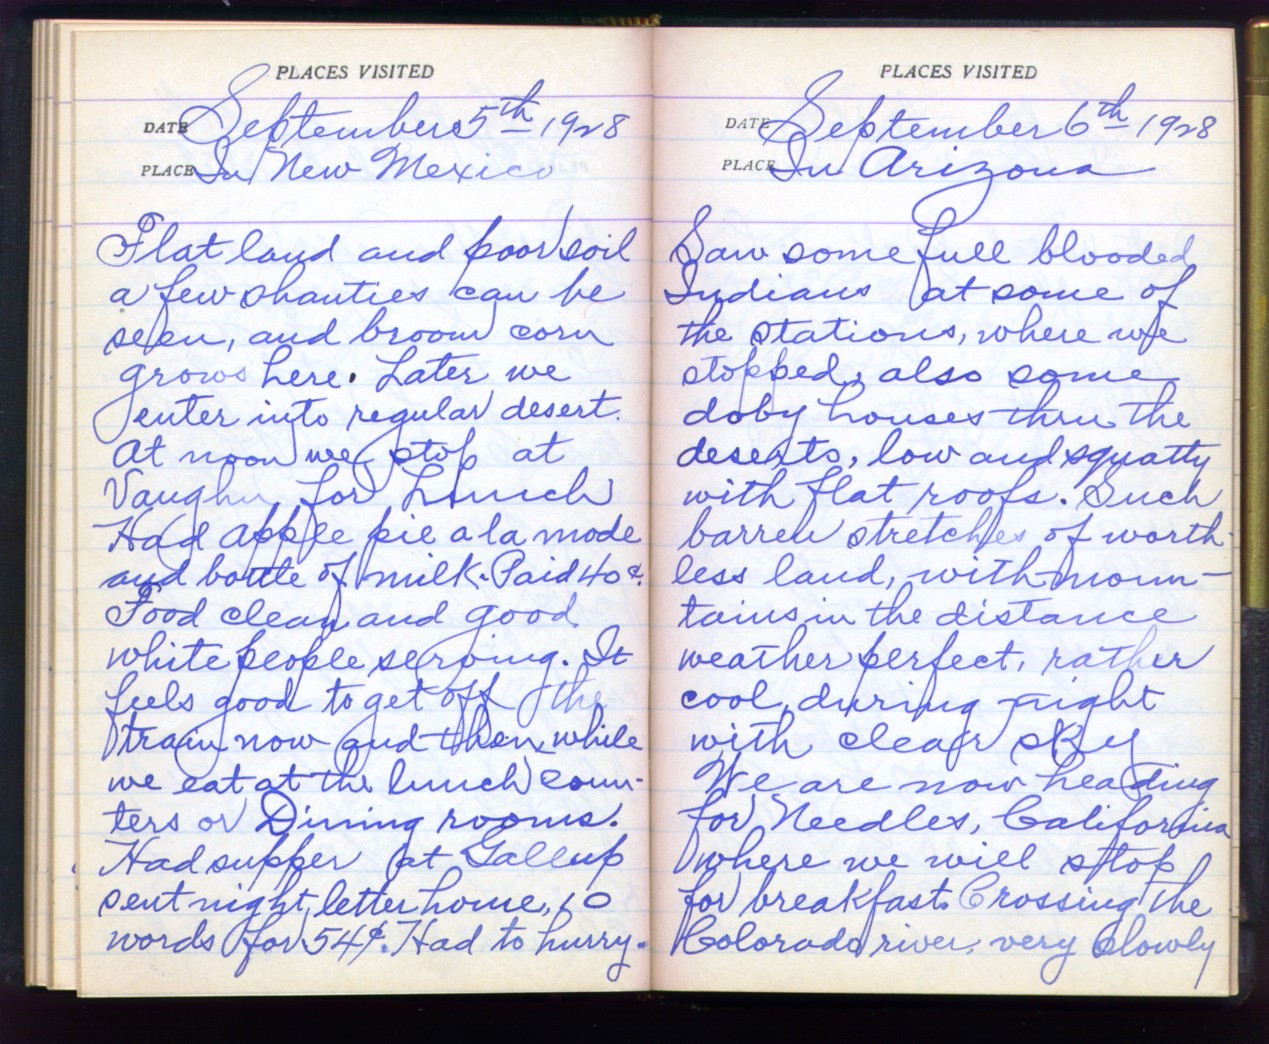 PLACES VISITED
DATE September 5th 1928
PLACE In New Mexico
Flat land and poor soil
a few shanties can be
seen, and broom corn
grows here. Later we
enter into regular desert.
At noon we stop at
Vaughn for Lunch
Had apple pie a la mode
and bottle of milk. Paid 40¢.
Food clean and good
white people serving. It
feels good to get off the
train now and then, while
we eat at the lunch coun-
ters or Dining rooms.
Had supper at Gallup
sent night letter home, 10
words for 54¢. Had to hurry.
PLACES VISITED
DATE September 6th 1928
PLACE In Arizona
Saw some full blooded
Indians at some of
the stations, where we
stopped, also some
doby houses thru the
deserts, low and squatty
with flat roofs. Such
barren stretches of worth-
less land, with moun-
tains in the distance
weather perfect, rather
cool during night
with clear sky
We are now heading
for Needles, California
where we will stop
for breakfast. Crossing the
Colorado river, very slowly